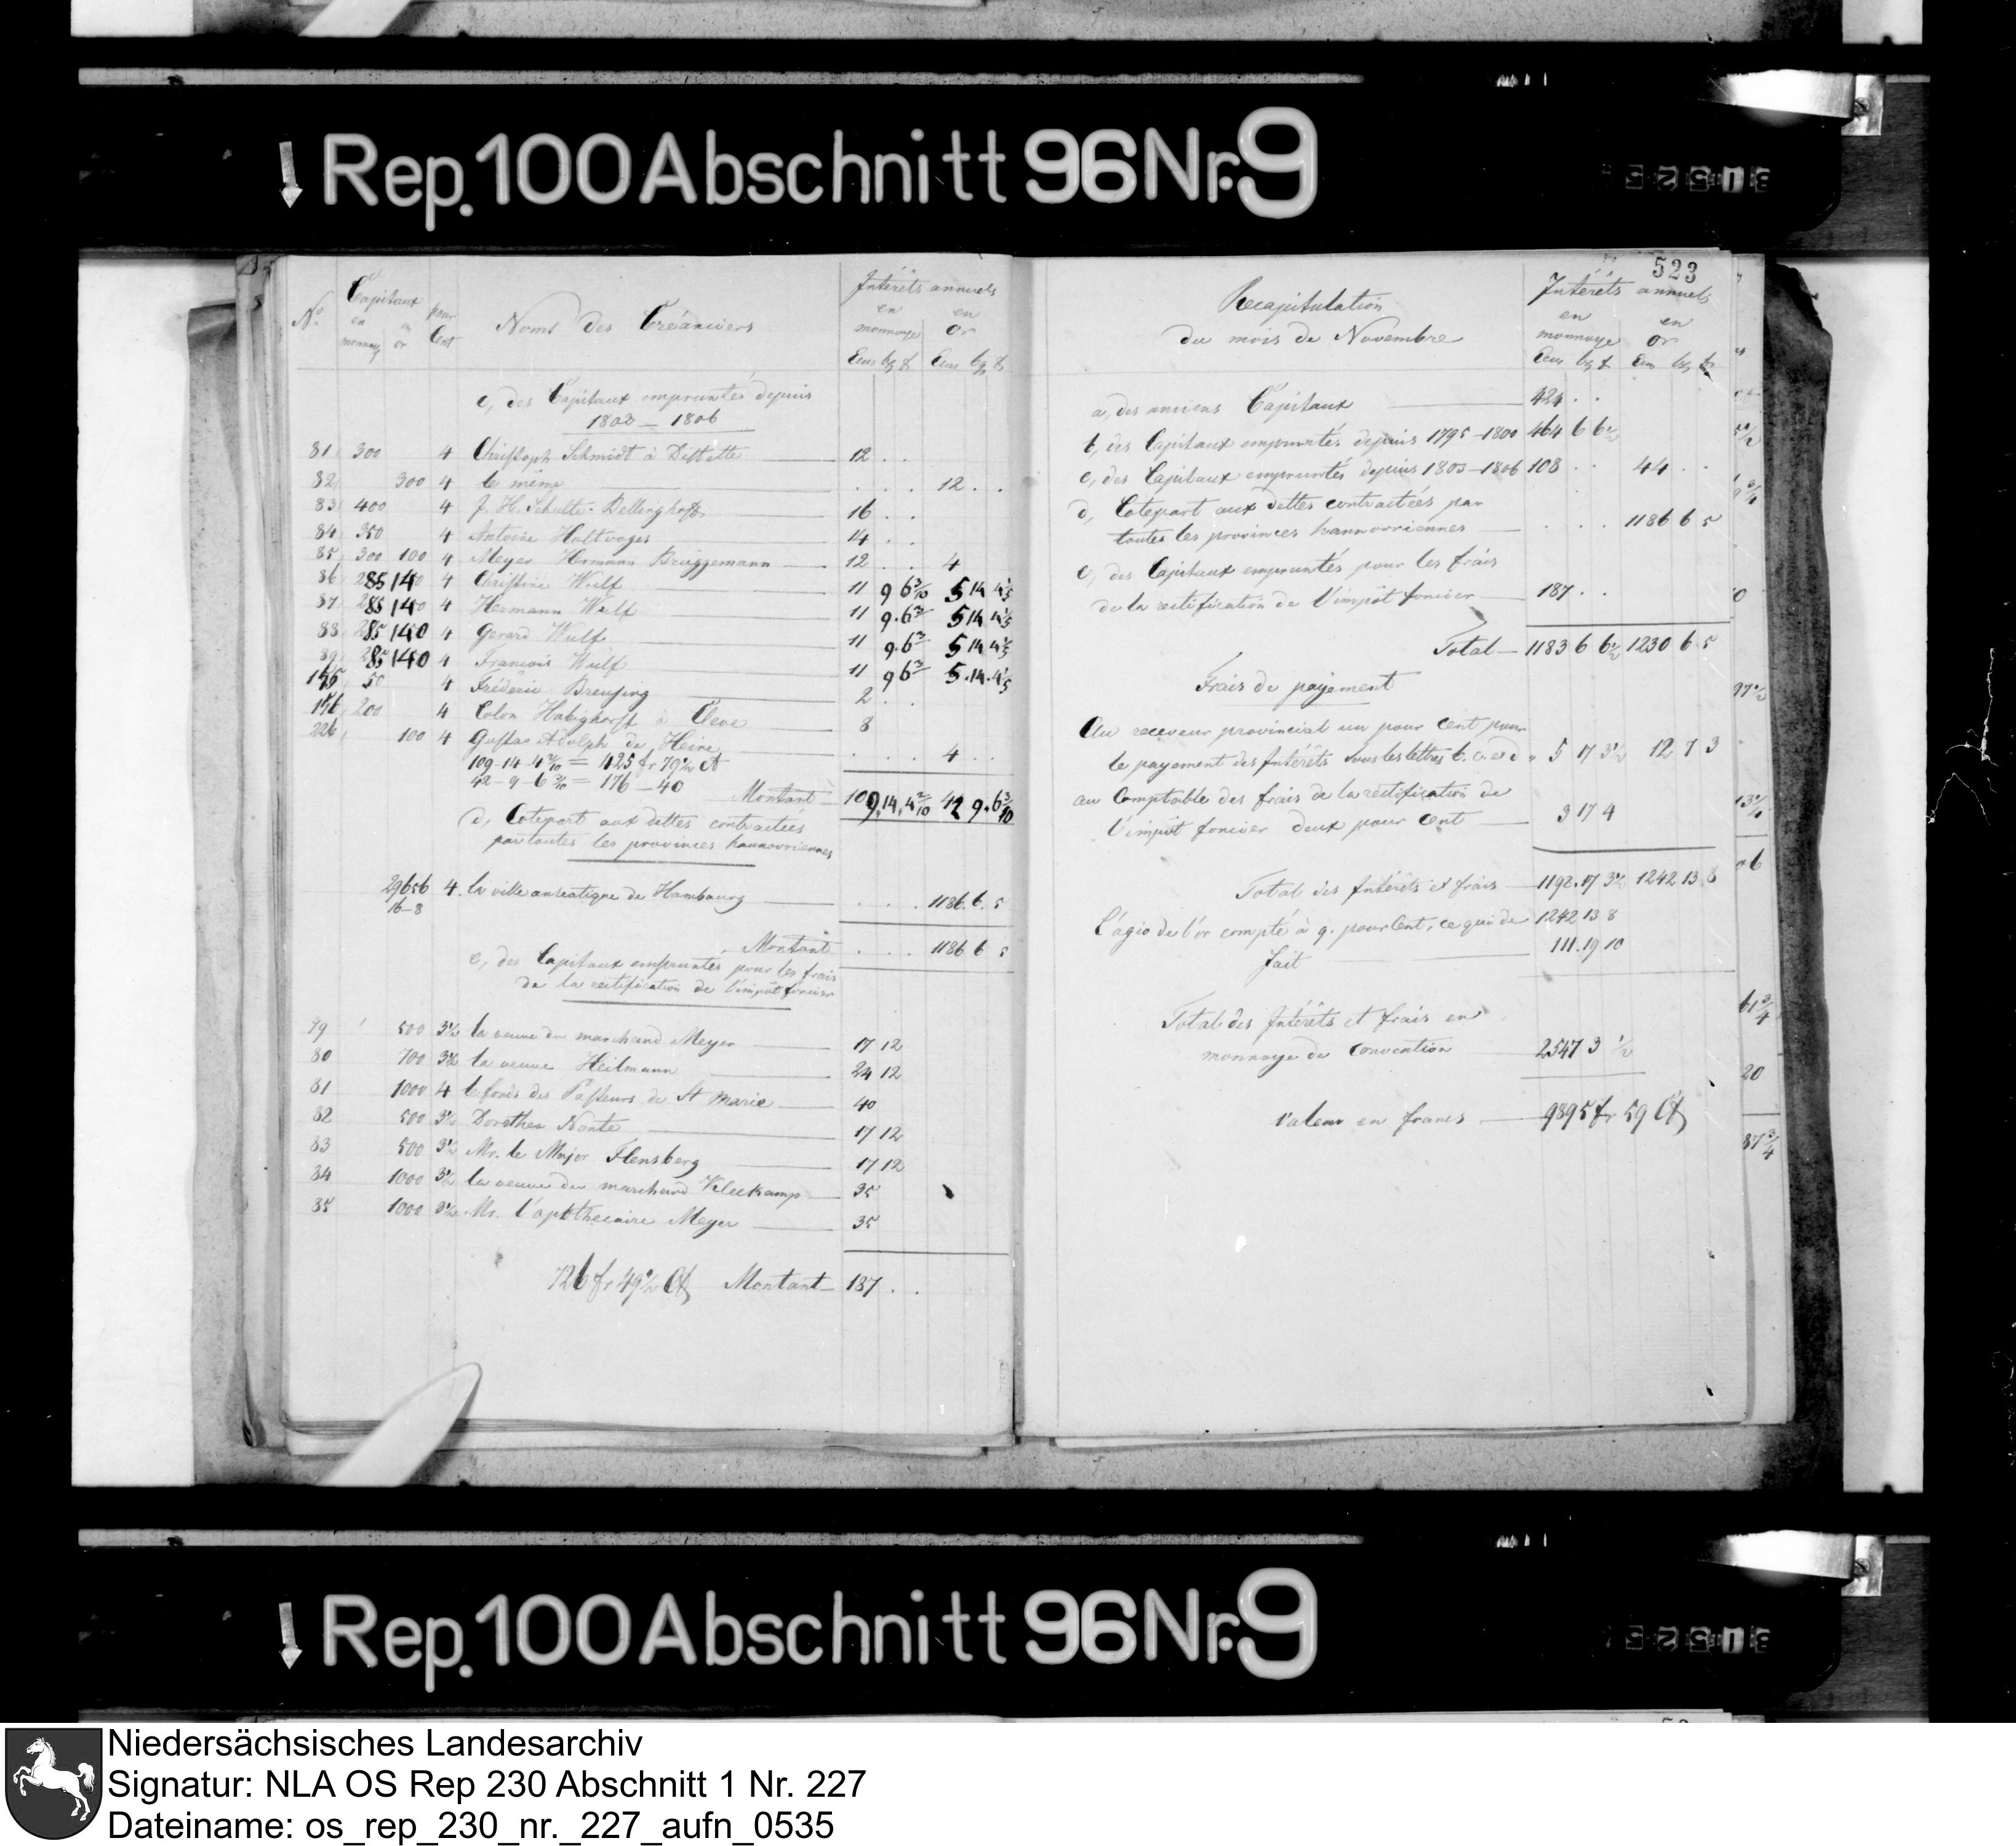 Rep. 100 Abschnitt 96 Nr. 9
523
No. Capitaux en monnaye en or pour Cent Noms des Créanciers Intérêts annuels en monnaye en or
Ecus bg & Ecus bg &
c, des Capitaux empruntés depuis
1803 – 1806
81 300 4 Christoph Schmidt à 12 . .
82 300 4 le même . . . 12 . .
83 400 4 J. H. Schulte-Bellinghoff 16 . .
84 350 4 Antoine Holtvoges 14 . .
85 300 100 4 Meyer Hermann Brüggemann 12 . . 4
86 285 140 4 Christine Wulf 11 9 6 3/10 5 14 4 1/5
87 285 140 4 Hermann Wulf 11 9. 6 3/ 5 14 4 1/5
88 285 140 4 Gerard Wulf 11 9. 6 3/ 5 14 4 1/5
89 285 140 4 François Wulf 11 9 6 3/ 5. 14. 4 1/5
50 4 Fréderic Breusing 2 . .
200 4 Colon Habighorst à Cleve 8
226 100 4 Gustav Adolph de Heine . . . 4 . .
109-14-4 2/10 = 425 fr 79 1/2 Ct
42-9-6 3/10 = 176 – 40 Montant 109. 14. 4 2/10 42 9. 6 3/10
d, Cotepart aux dettes contractées
par toutes les provinces hannovriennes
29656 4. la ville anseatique de Hambourg . . . 1186. 6. 5
16–8
Montant . . . 1186 6 5
e, des Capitaux empruntés pour les frais
de la rectification de l'impôt foncier
79 500 3 1/2 la veuve du marchand Meyer 17 12
80 700 3 1/2 la veuve Heilmann 24 12
81 1000 4 le fonds des Pasteurs de St Marie 40
82 500 3 1/2 Dorothea Konte 17 12
83 500 3 1/2 Mr. le Major Flensberg 17 12
84 1000 3 1/2 la veuve du marchand Kleekamp 35
85 1000 3 1/2 Mr. l'apothecaire Meyer 35
726 fr 49 1/2 Ct Montant – 187 . .
Recapitulation
du mois de Novembre
Intérêts annuels
en monnaye en or
Ecus bg & Ecus bg &
a, des anciens Capitaux 424 . .
b, des Capitaux empruntés depuis 1795–1800 464 6 6 1/2
c, des Capitaux empruntés depuis 1803–1806 108 . . 44 . .
d, Cotepart aux dettes contractées par
toutes les provinces hannovriennes . . . 1186 6 5
e, des Capitaux empruntés pour les frais
de la rectification de l'impôt foncier 187 . .
Total – 1183 6 6 1/2 1230 6 5
Frais de payement
Au receveur provincial un pour Cent pour
le payement des Intérêts sous les lettres b. c. et d 5 17 3 1/2 12 7 3
au Comptable des frais de la rectification de
l'impôt foncier deux pour Cent 3 17 4
Total des Intérêts et frais 1192. 17 3 1/2 1242 13 8
l'agio de l'or compté à 9. pour Cent, ce qui de 1242 13 8
fait 111. 19 10
Total des Intérêts et frais en
monnaye de Convention 2547 3 1/2
valeur en francs 9895 fr 59 Ct
Rep. 100 Abschnitt 96 Nr. 9
Niedersächsisches Landesarchiv
Signatur: NLA OS Rep 230 Abschnitt 1 Nr. 227
Dateiname: os_rep_230_nr._227_aufn_0535